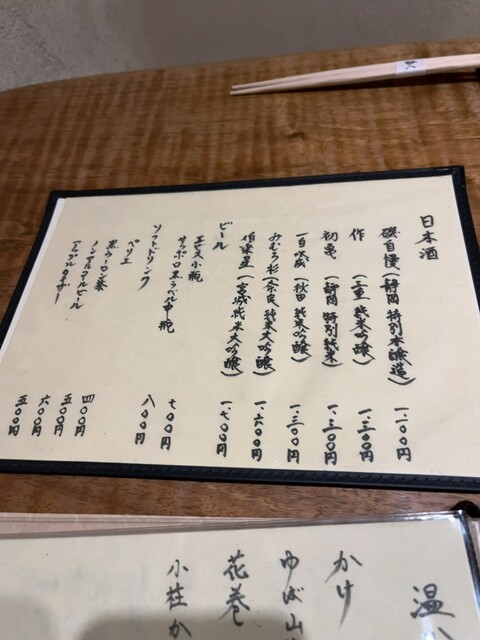 日本酒
磯自慢(静岡 特別本醸造) 一、一〇〇円
作(三重 純米吟醸) 一、三〇〇円
初亀(静岡 特別純米) 一、三〇〇円
一白水成(秋田 純米吟醸) 一、三〇〇円
みむろ杉(奈良 純米大吟醸) 一、六〇〇円
伯楽星(宮城 純米大吟醸) 一、七〇〇円
ビール
エビス小瓶 七〇〇円
サッポロ黒ラベル中瓶 八〇〇円
ソフトドリンク
ペリエ 四〇〇円
黒ウーロン茶 五〇〇円
ノンアルコールビール 六〇〇円
アップルタイザー 五〇〇円
温
かけ
ゆば山
花巻
小柱か